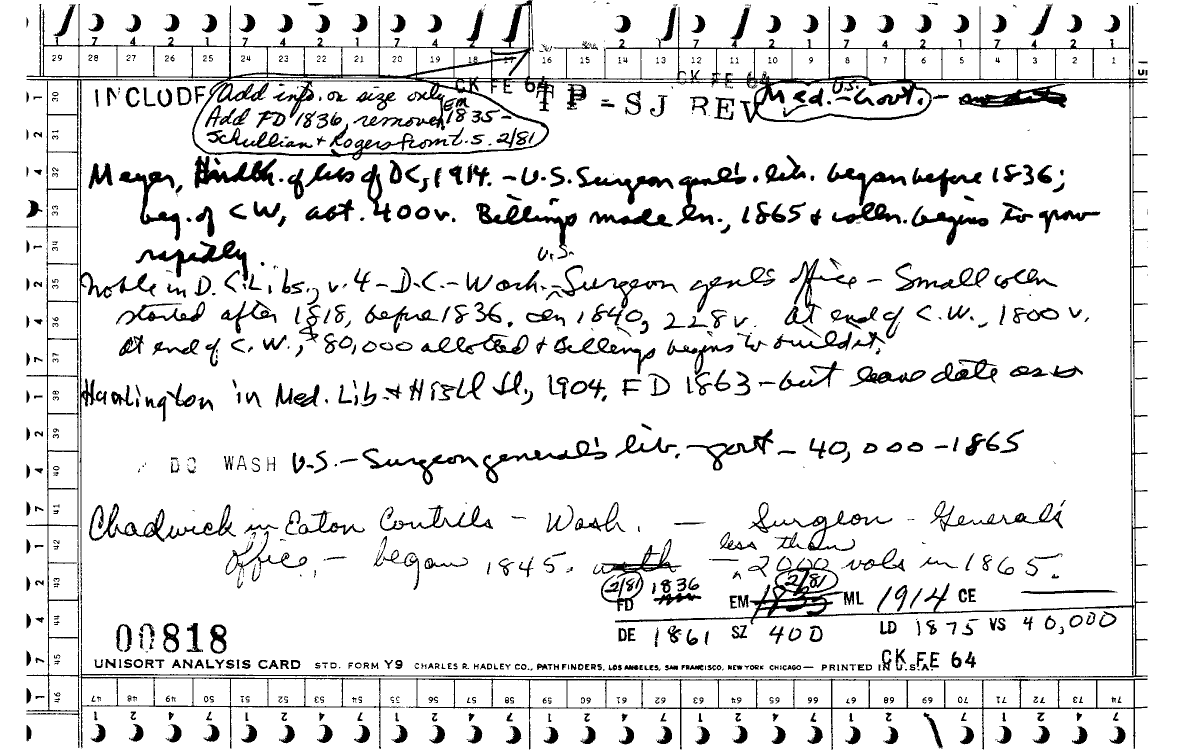 29 28 27 26 25 24 23 22 21 20 19 18 17 16 15 14 13 12 11 10 9 8 7 6 5 4 3 2 1
CK FE 64 CK FE 64
INCLUDE TP-SJ REV U.S. Med.-Govt.-
Add info. on size only
Add FD 1836, remove EM 1835-
Schullian + Rogers from t.s. 2/81
Meyer, Hndbk. of libs of DC, 1914. - U.S. Surgeon genl's. lib. began before 1836;
beg. of CW, abt. 400v. Billings made ln., 1865 & colln. begins to grow
rapidly.
Noble in D.C. Libs., v. 4 - D.C. - Wash. - U.S. Surgeon genl's office - Small colln
started after 1818, before 1836. In 1840, 228 v. At end of C.W., 1800 v.
At end of C.W., $80,000 allotted & Billings begins to build it.
Harrington in Med. Lib. & Histl Jl., 1904. FD 1863 - but leave date as is
DC WASH U.S. - Surgeon general's lib. - govt - 40,000 - 1865
Chadwick in Eaton Contribs - Wash. - Surgeon-General's
office, - began 1845. - less than 2000 vols in 1865.
2/81 1836 2/81
FD EM 1835 ML 1914 CE
DE 1861 SZ 400 LD 1875 VS 40,000
00818
CK FE 64
UNISORT ANALYSIS CARD STD. FORM Y9 CHARLES R. HADLEY CO., PATHFINDERS, LOS ANGELES, SAN FRANCISCO, NEW YORK CHICAGO — PRINTED IN U.S.A.
47 48 49 50 51 52 53 54 55 56 57 58 59 60 61 62 63 64 65 66 67 68 69 70 71 72 73 74